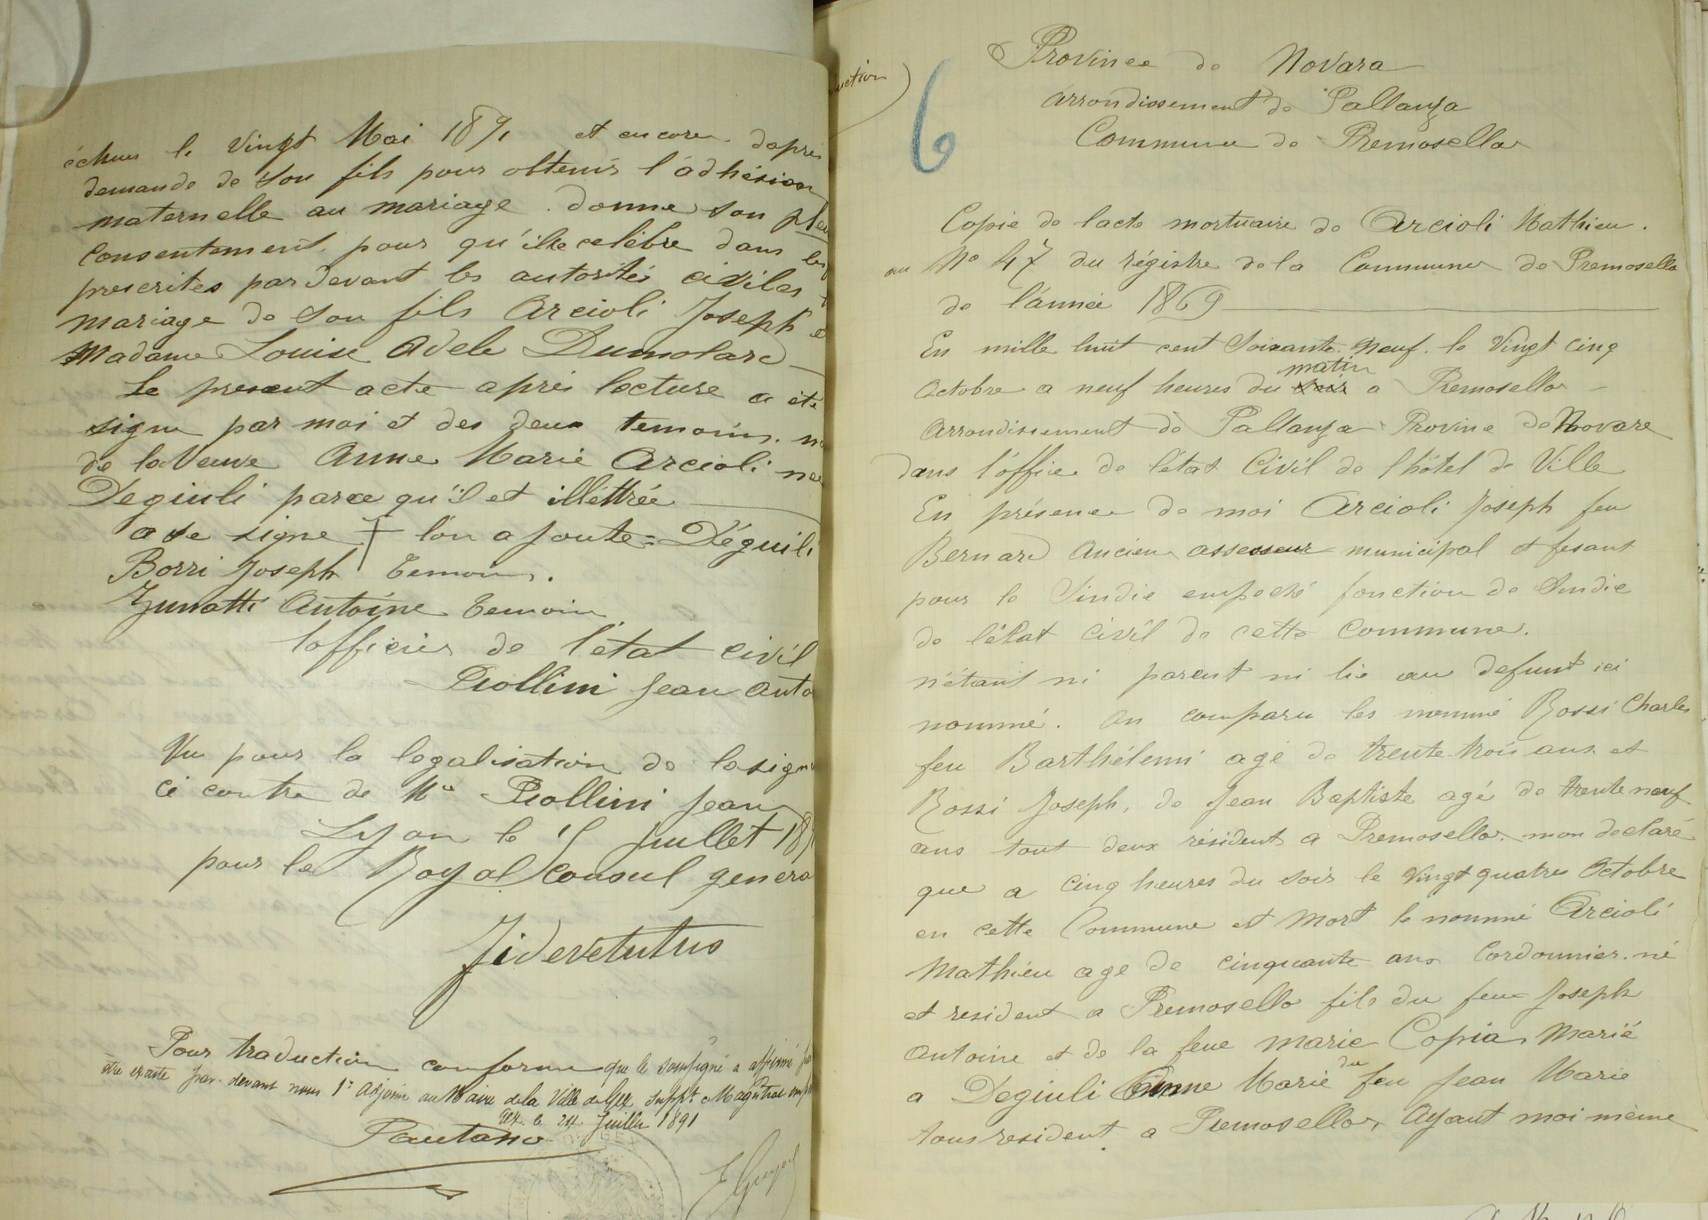 échue le Vingt Mai 1891 et encore dapres
demande de son fils pour obtenir l'adhésion
maternelle au mariage. donne son
consentement pour qu'il se celèbre dans les
prescrites par devant les autorités civiles
mariage de son fils Arcioli Joseph
Madame Louise Adele Dumolard
Le present acte après lecture a été
signé par moi et des deux temoins.
de la Veuve Anne Marie Arcioli née
Degiuli parce qu'il et illéttrée
a de signe † l'on a joute = Déguili
Borri Joseph temoin.
Zunatti Antoine temoin
l'officier de l'état civil
Piollini Jean Anto
Vu pour la legalisation de la sign
ci contre de Mr Piollini Jean
Lyon le Juillet 189
pour le Royal Consul genera
Pour traduction conforme que le soussigné a affirmé
être exacte par devant nous 1er Adjoint au Maire de la Ville de Gex suppt. Magistrat
Gex le 24 Juillet 1891
Pautano
uction
6
Province de Novara
Arrondissement de Pallanza
Commune de Premosello
Copie de lacte mortuaire de Arcioli Mathieu.
au No 47 du régistre de la Commune de Premosello
de l'année 1869
En mille huit cent soixante neuf. le Vingt cinq
matin
Octobre a neuf heures du soir a Premosello
Arrondissement de Pallanza Province de Novare
dans l'office de l'état Civil de l'hôtel de Ville
En présence de moi Arcioli Joseph feu
Bernard Ancien assesseur municipal et fesant
pour le Sindic empeché fonction de Sindic
de l'état civil de cette Commune.
n'étant ni parent ni lié au defunt ici
nommé. On comparu les nommé Rossi Charles
feu Barthélemi agé de trente-trois ans et
Rossi Joseph, de Jean Baptiste agé de trente neuf
ans tout deux résident a Premosello. mon declaré
que a cinq heures du soir le Vingt quatre Octobre
en cette Commune est mort le nommé Arcioli
Mathieu age de cinquante ans Cordonnier. né
et resident a Premosello fils du feu Joseph
Antoine et de la feue Marie Copia Marié
du
a Degiuli Anne Marie feu Jean Marie
tous resident a Premosello, Ayant moi même